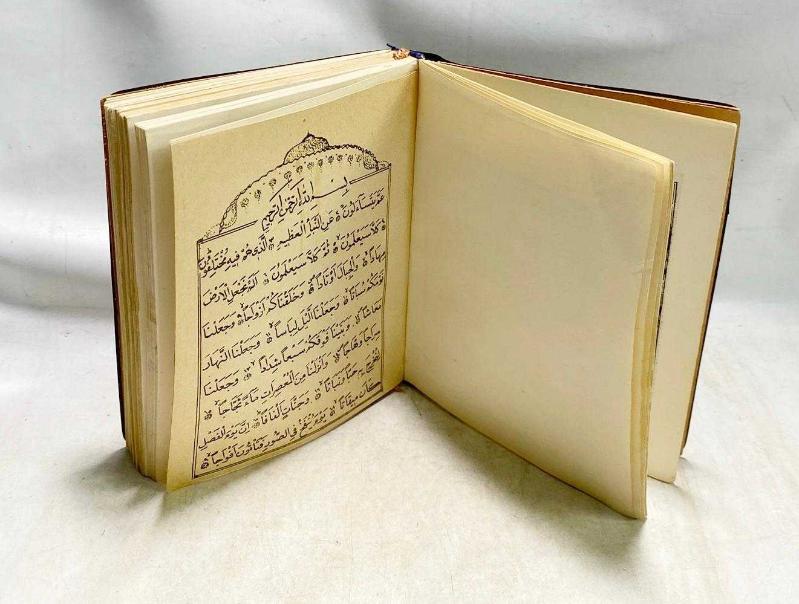 بِسْمِ اللهِ الرَّحْمٰنِ الرَّحِيْمِ
عَمَّ يَتَسَآءَلُوْنَ عَنِ النَّبَاِ الْعَظِيْمِ الَّذِى هُمْ فِيْهِ مُخْتَلِفُوْنَ
كَلَّا سَيَعْلَمُوْنَ ثُمَّ كَلَّا سَيَعْلَمُوْنَ اَلَمْ نَجْعَلِ الْاَرْضَ
مِهَادًا وَالْجِبَالَ اَوْتَادًا وَخَلَقْنَاكُمْ اَزْوَاجًا وَجَعَلْنَا
نَوْمَكُمْ سُبَاتًا وَجَعَلْنَا الَّيْلَ لِبَاسًا وَجَعَلْنَا النَّهَارَ
مَعَاشًا وَبَنَيْنَا فَوْقَكُمْ سَبْعًا شِدَادًا وَجَعَلْنَا
سِرَاجًا وَهَّاجًا وَاَنْزَلْنَا مِنَ الْمُعْصِرَاتِ مَآءً ثَجَّاجًا
لِنُخْرِجَ بِهِ حَبًّا وَنَبَاتًا وَجَنَّاتٍ اَلْفَافًا اِنَّ يَوْمَ الْفَصْلِ
كَانَ مِيْقَاتًا يَوْمَ يُنْفَخُ فِى الصُّوْرِ فَتَأْتُوْنَ اَفْوَاجًا